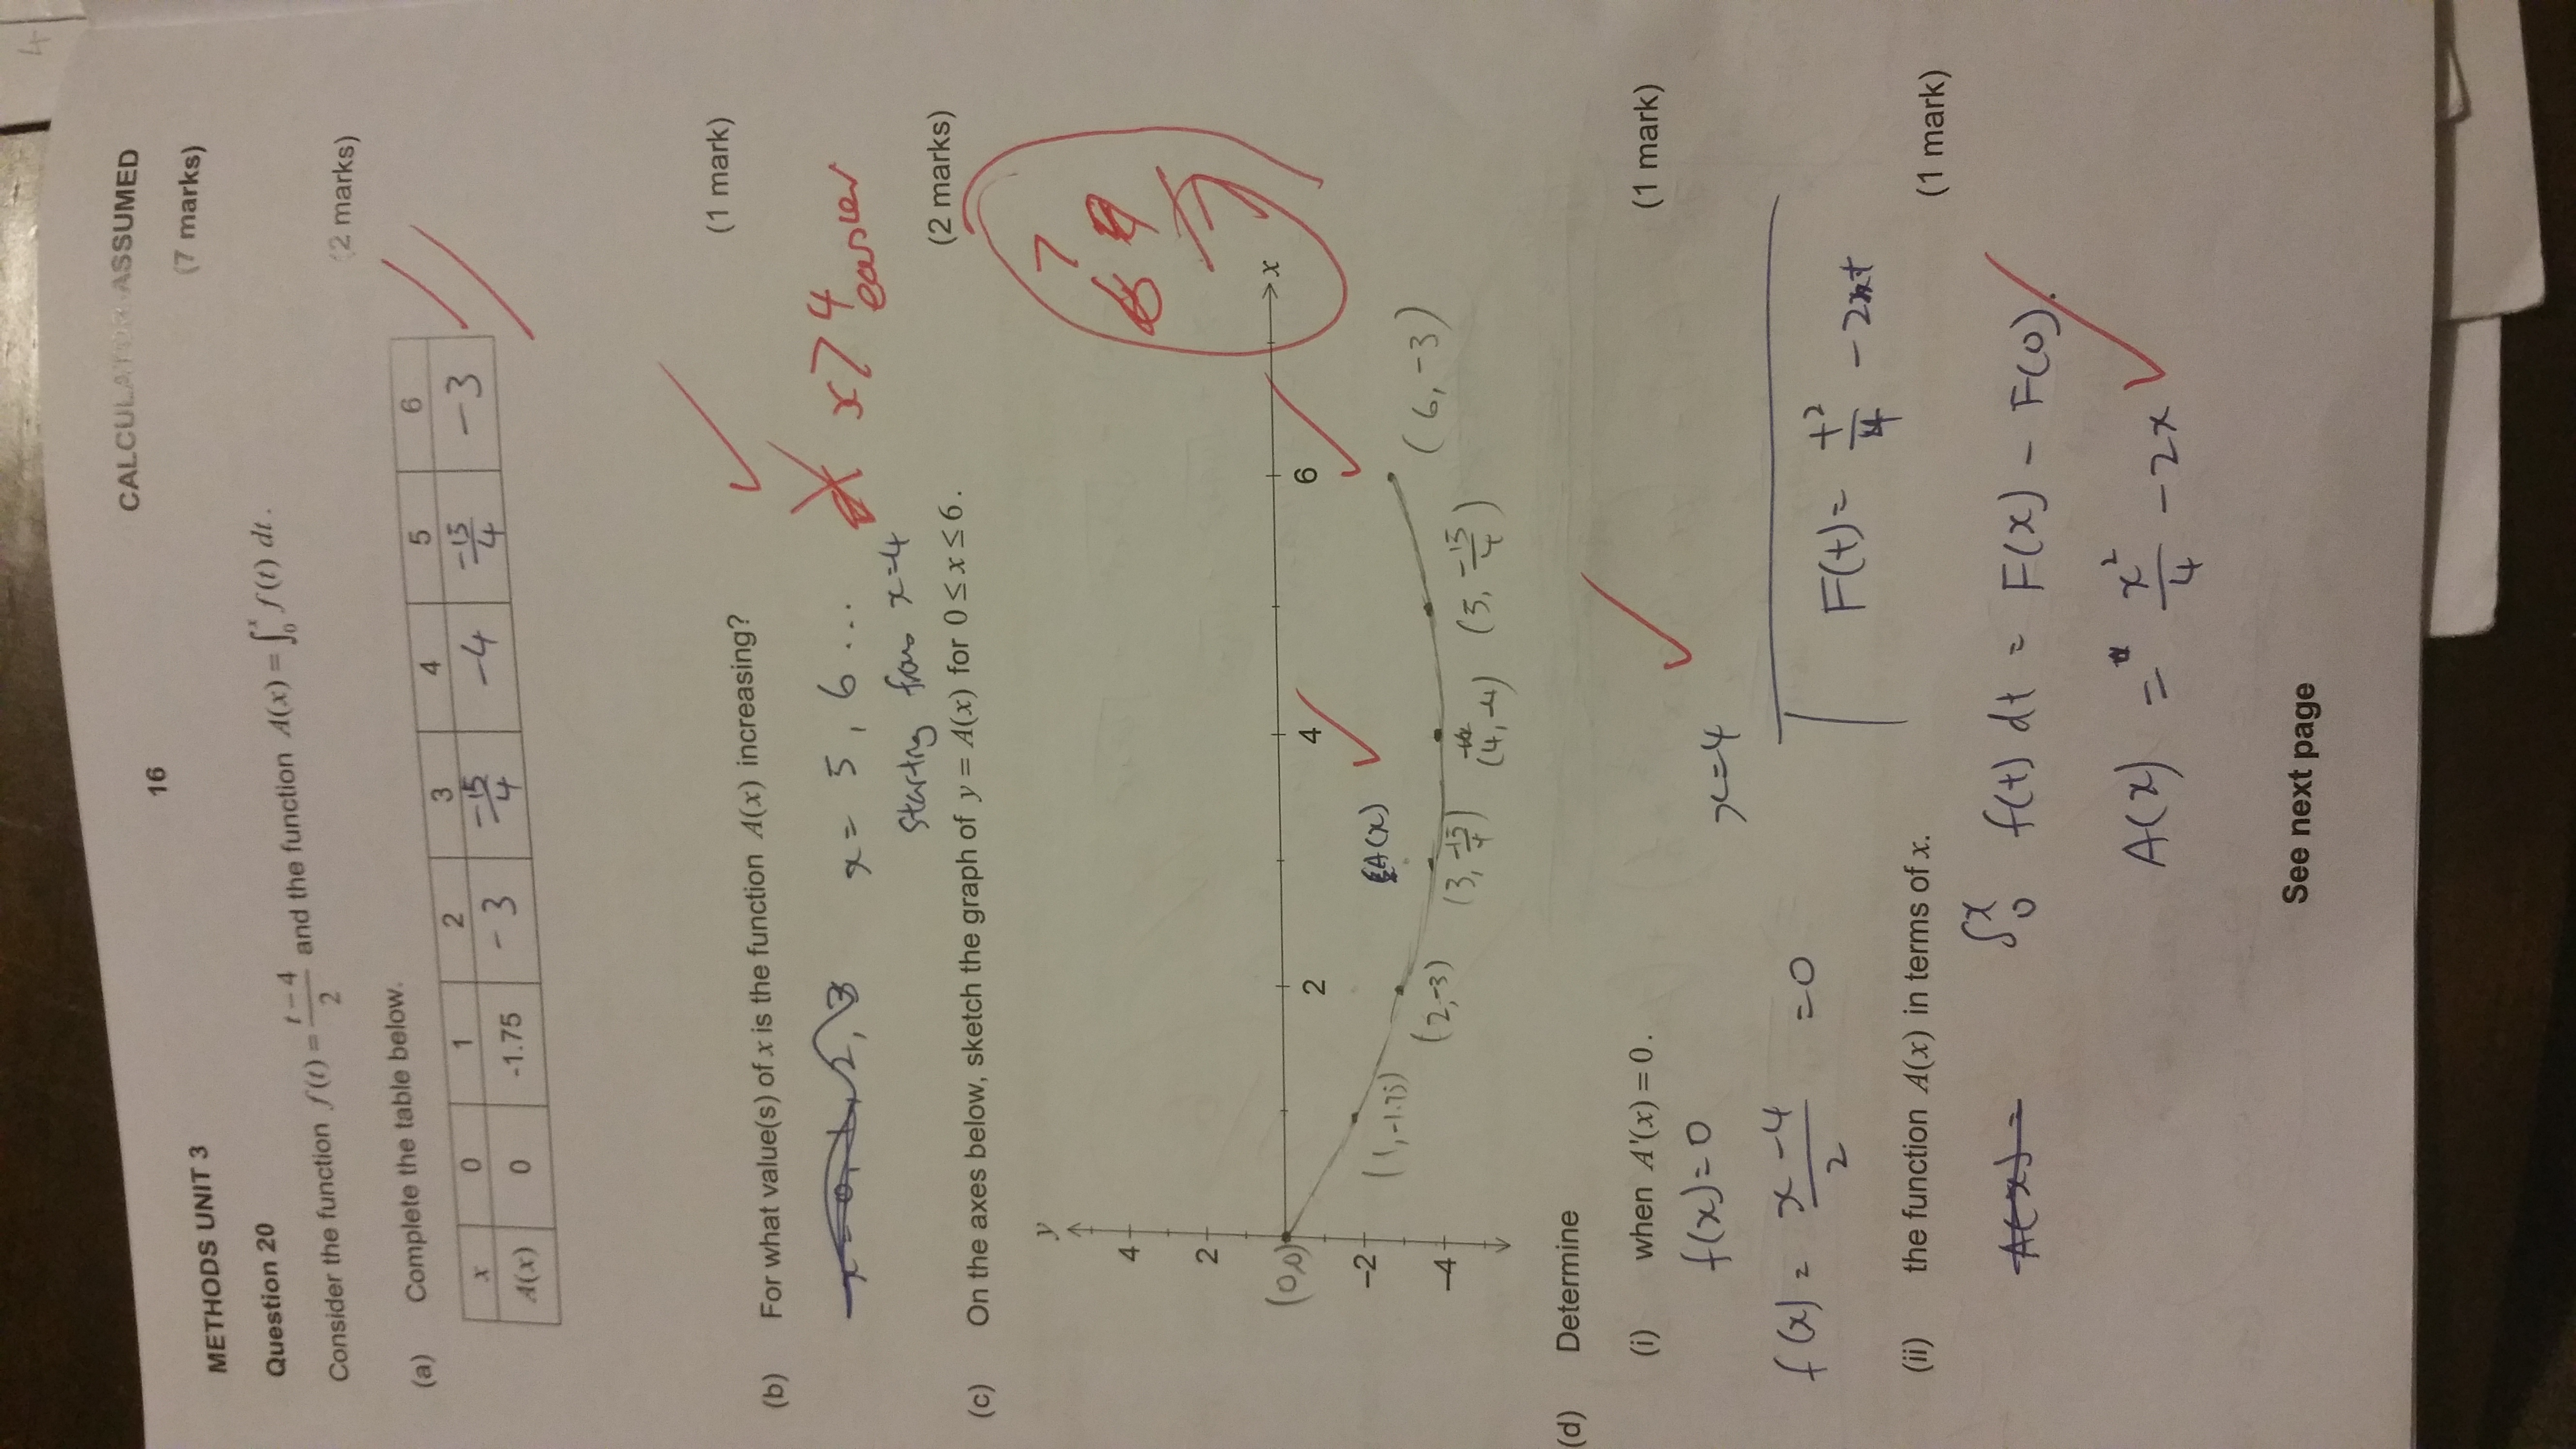 METHODS UNIT 3 16 CALCULATOR ASSUMED
Question 20 (7 marks)
Consider the function f(t) = (t − 4)/2 and the function A(x) = ∫₀ˣ f(t) dt.
(a) Complete the table below. (2 marks)
x 0 1 2 3 4 5 6
A(x) 0 -1.75 -3 -15/4 -4 -15/4 -3
(b) For what value(s) of x is the function A(x) increasing? (1 mark)
x = 5, 6 ...
x > 4
easier
starting from x=4
(c) On the axes below, sketch the graph of y = A(x) for 0 ≤ x ≤ 6. (2 marks)
y
4
2
(0,0)
−2
−4
2 4 6 x
A(x)
(1,-1.75) (2,-3) (3, -15/4) (4,-4) (5, -15/4) (6,-3)
7
7
(d) Determine
(i) when A'(x) = 0. (1 mark)
f(x)=0
f(x) = (x-4)/2 = 0
x=4
F(t) = t²/4 - 2t
(ii) the function A(x) in terms of x. (1 mark)
A(x) =
∫₀ˣ f(t) dt = F(x) - F(0).
A(x) = x²/4 - 2x
See next page